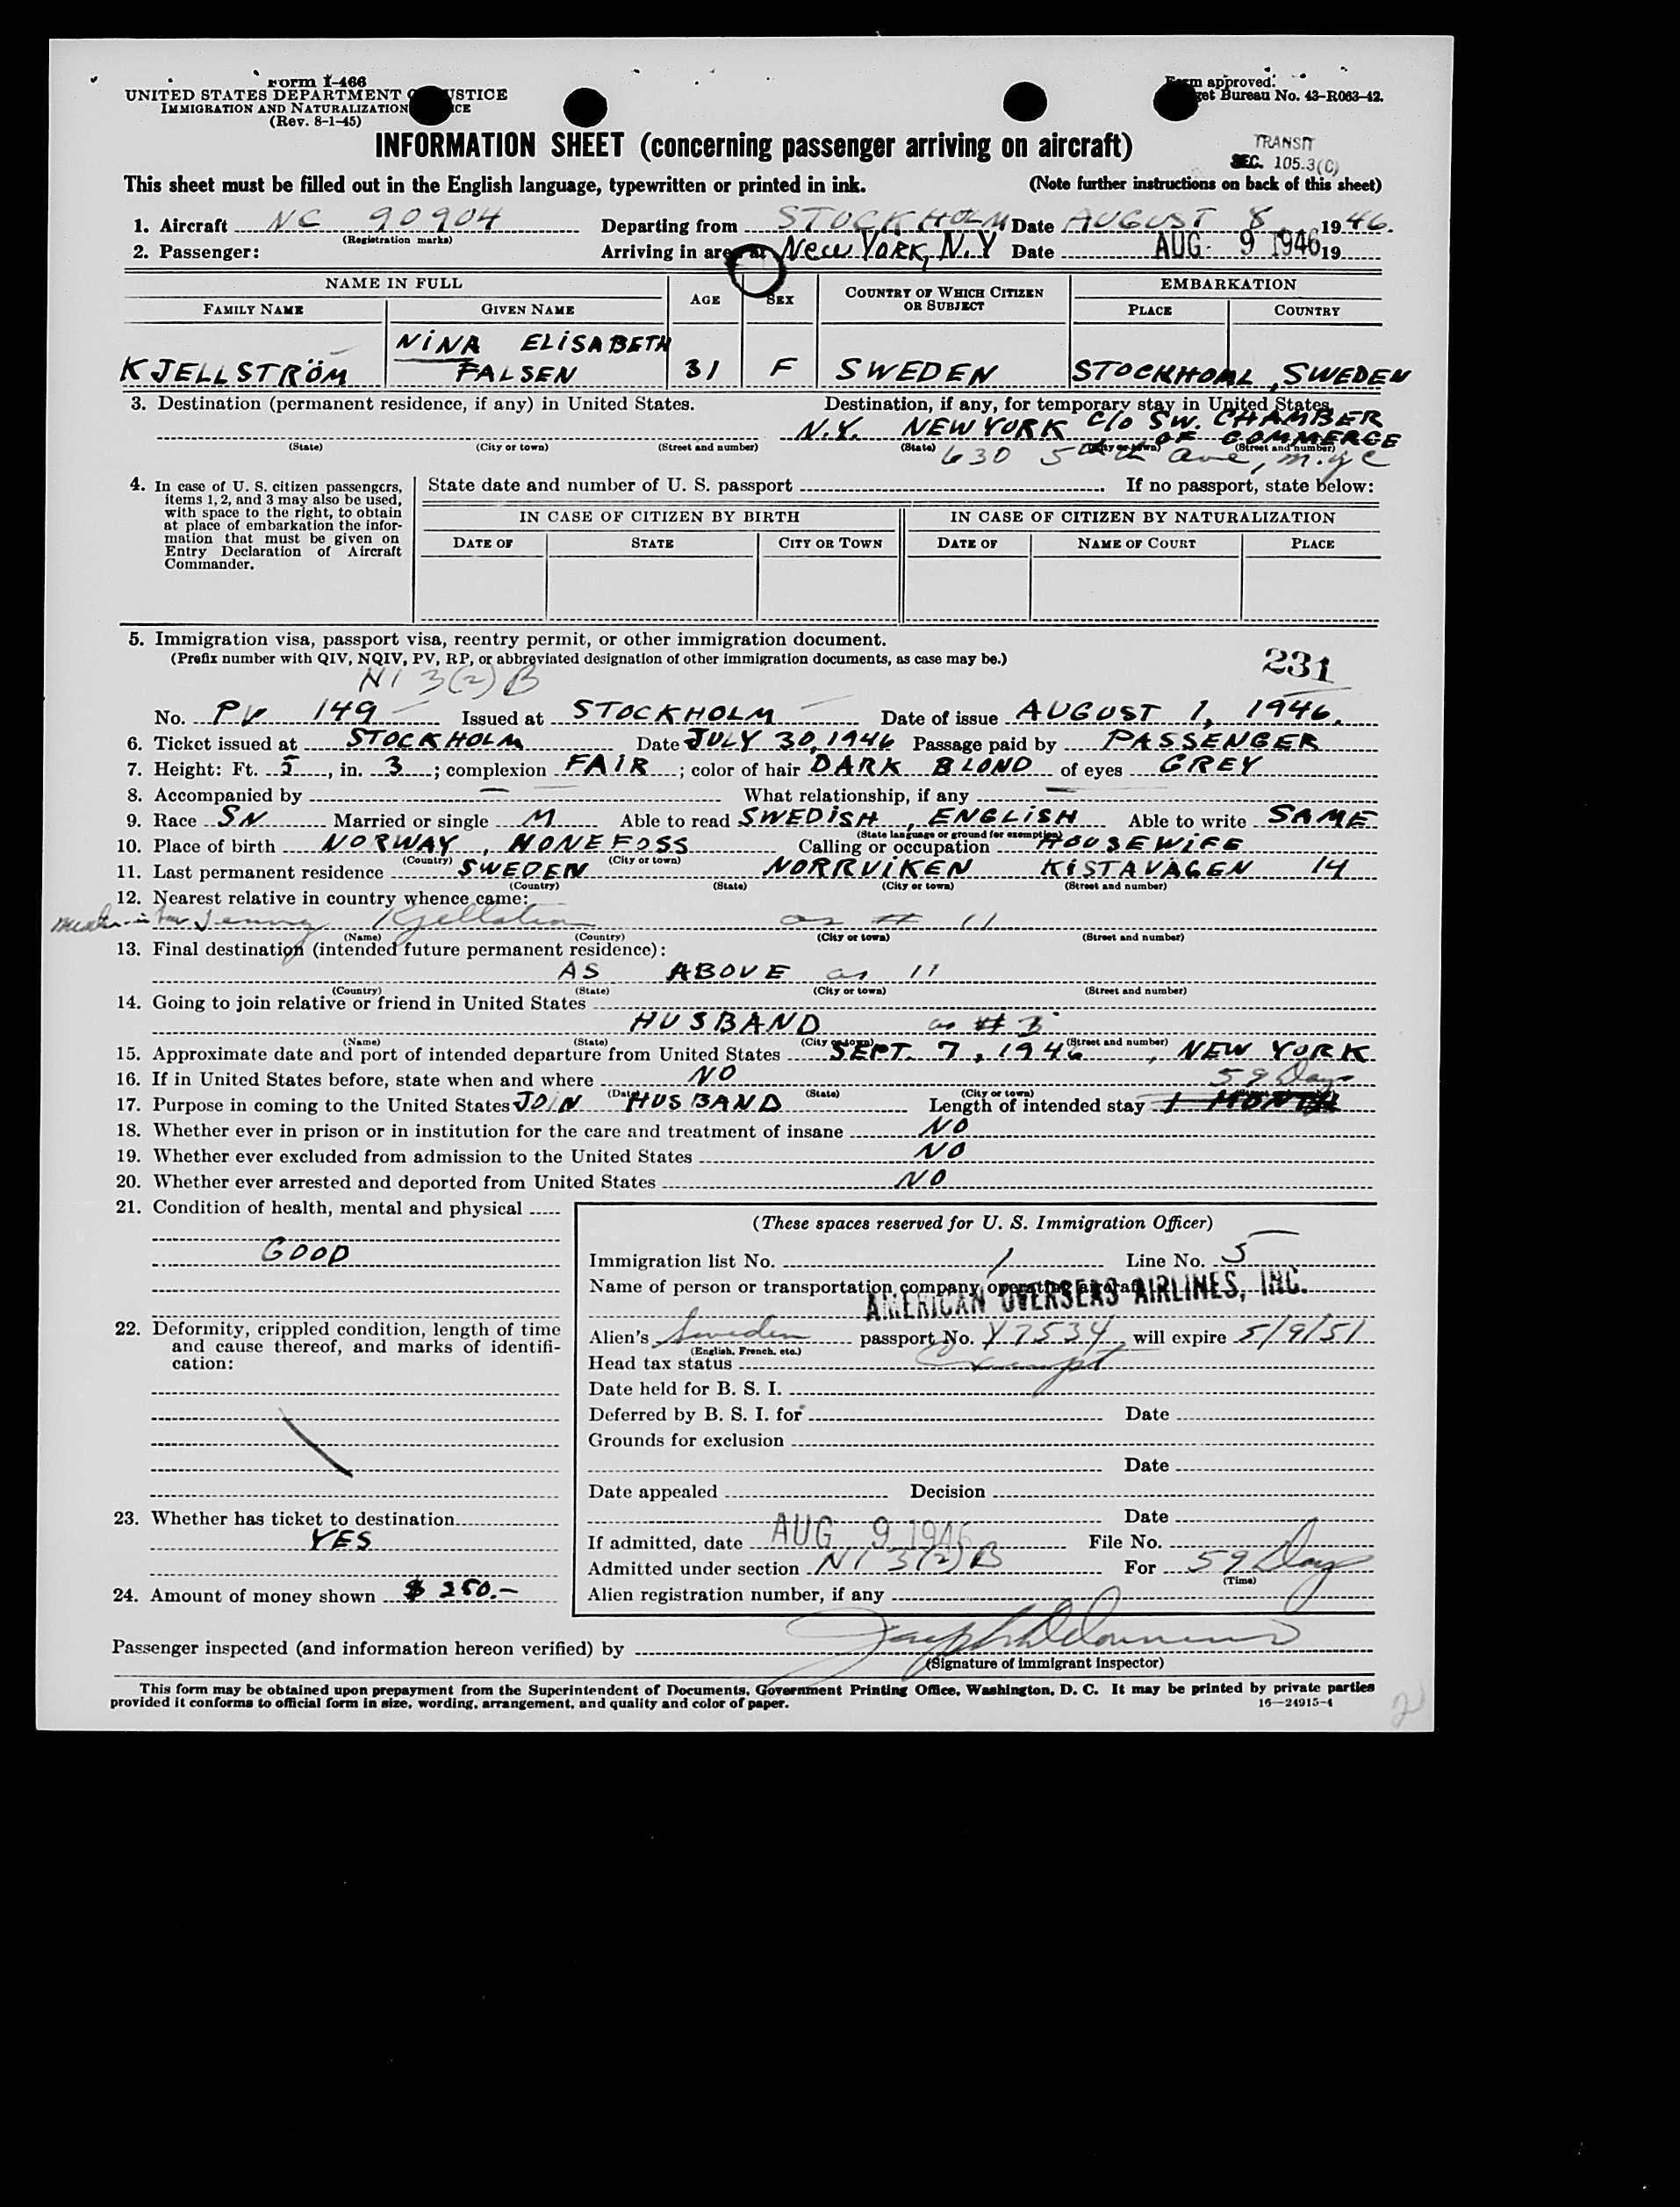 Form I-466
UNITED STATES DEPARTMENT
IMMIGRATION AND NATURALIZATION
(Rev. 8-1-45)
Form approved.
Bureau No. 43-R063-42.
INFORMATION SHEET (concerning passenger arriving on aircraft)
TRANSIT
SEC. 105.3(C)
This sheet must be filled out in the English language, typewritten or printed in ink. (Note further instructions on back of this sheet)
1. Aircraft NC 90904 Departing from STOCKHOLM Date AUGUST 8 1946.
(Registration marks)
2. Passenger: Arriving in area at New York, N.Y Date AUG 9 1946 19
NAME IN FULL AGE SEX COUNTRY OF WHICH CITIZEN OR SUBJECT EMBARKATION
FAMILY NAME GIVEN NAME PLACE COUNTRY
NINA ELISABETH
KJELLSTRÖM FALSEN 31 F SWEDEN STOCKHOML, SWEDEN
3. Destination (permanent residence, if any) in United States. Destination, if any, for temporary stay in United States.
N.Y. NEW YORK C/o SW. CHAMBER
OF COMMERCE
(State) (City or town) (Street and number) (State) (City or town) (Street and number)
630 5th Ave, N.Y.C
4. In case of U. S. citizen passengers, items 1, 2, and 3 may also be used, with space to the right, to obtain at place of embarkation the information that must be given on Entry Declaration of Aircraft Commander.
State date and number of U. S. passport If no passport, state below:
IN CASE OF CITIZEN BY BIRTH IN CASE OF CITIZEN BY NATURALIZATION
DATE OF STATE CITY OR TOWN DATE OF NAME OF COURT PLACE
5. Immigration visa, passport visa, reentry permit, or other immigration document.
(Prefix number with QIV, NQIV, PV, RP, or abbreviated designation of other immigration documents, as case may be.)
231
NI 3(2) B
No. PV 149 Issued at STOCKHOLM Date of issue AUGUST 1, 1946.
6. Ticket issued at STOCKHOLM Date JULY 30, 1946 Passage paid by PASSENGER
7. Height: Ft. 5, in. 3; complexion FAIR; color of hair DARK BLOND of eyes GREY
8. Accompanied by — What relationship, if any —
9. Race SN Married or single M Able to read SWEDISH, ENGLISH Able to write SAME
(State language or ground for exemption)
10. Place of birth NORWAY, HONEFOSS Calling or occupation HOUSEWIFE
(Country) (City or town)
11. Last permanent residence SWEDEN NORRVIKEN KISTAVÄGEN 14
(Country) (State) (City or town) (Street and number)
12. Nearest relative in country whence came:
Jenny Kjellstrom as # 11
(Name) (Country) (City or town) (Street and number)
13. Final destination (intended future permanent residence):
AS ABOVE as 11
(Country) (State) (City or town) (Street and number)
14. Going to join relative or friend in United States
HUSBAND as # 3
(Name) (State) (City or town) (Street and number)
15. Approximate date and port of intended departure from United States SEPT. 7, 1946, NEW YORK
16. If in United States before, state when and where NO
(Date) (State) (City or town)
59 Days
17. Purpose in coming to the United States JOIN HUSBAND Length of intended stay 1 MONTH
18. Whether ever in prison or in institution for the care and treatment of insane NO
19. Whether ever excluded from admission to the United States NO
20. Whether ever arrested and deported from United States NO
21. Condition of health, mental and physical
GOOD
22. Deformity, crippled condition, length of time and cause thereof, and marks of identification:
23. Whether has ticket to destination
YES
24. Amount of money shown $ 250.-
(These spaces reserved for U. S. Immigration Officer)
Immigration list No. 1 Line No. 5
Name of person or transportation company operating aircraft
AMERICAN OVERSEAS AIRLINES, INC.
Alien's Sweden passport No. Y7534, will expire 5/9/51
(English, French, etc.)
Head tax status Exempt
Date held for B. S. I.
Deferred by B. S. I. for Date
Grounds for exclusion
Date
Date appealed Decision
Date
If admitted, date AUG 9 1946 File No.
Admitted under section NI 3(2) B For 59 Days
(Time)
Alien registration number, if any
Passenger inspected (and information hereon verified) by
(Signature of Immigrant Inspector)
This form may be obtained upon prepayment from the Superintendent of Documents, Government Printing Office, Washington, D. C. It may be printed by private parties
provided it conforms to official form in size, wording, arrangement, and quality and color of paper. 16—24915-4
2